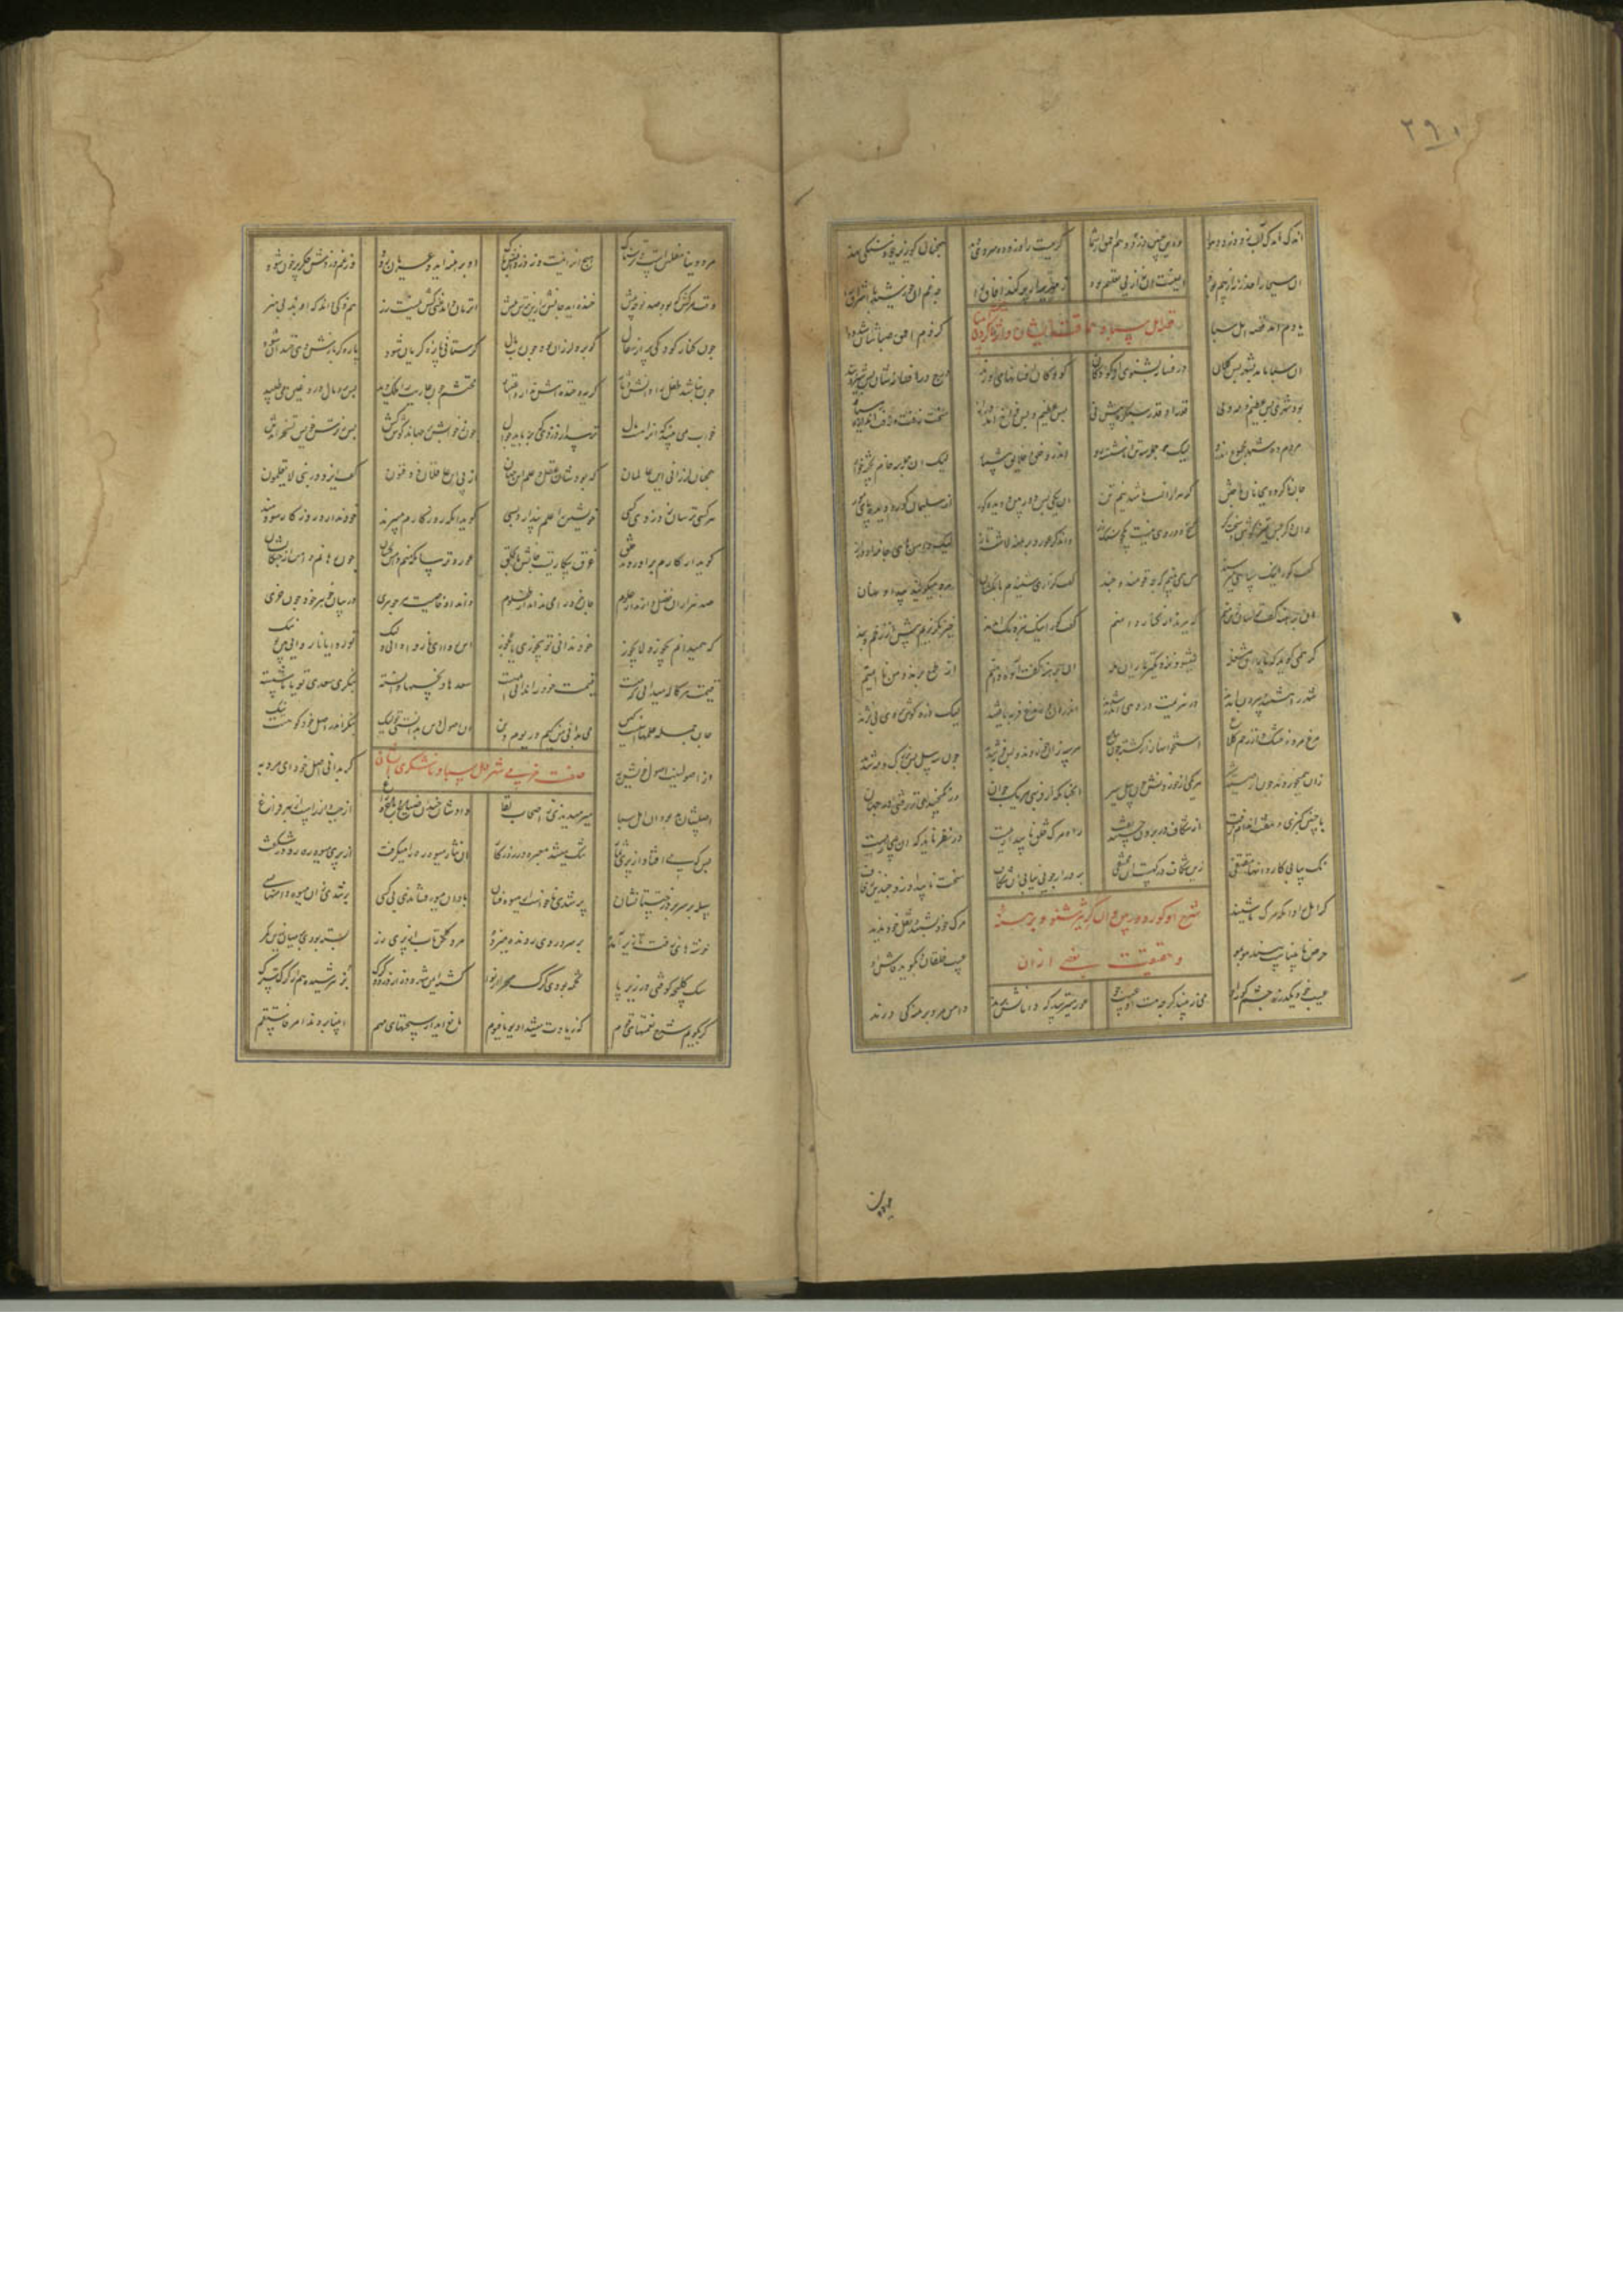 ۲۹۰
اندک اندک آب را دزدد هوا وین چنین دزدد هم احمق از شما گرمیت را دزدد و سردی دهد همچنان کو زیر خود سنگی نهد
ایمنست او آن از پی تعلیم بود زمهریر ار پر کند آفاق را چه غم آن خورشید با اشراق را
یادم آمد قصه اهل سبا کز دم احمق صباشان شد وبا
قصه اهل سبا و حماقت ایشان
آن سبا ماند بشهر بس کلان در فسانه بشنوی از کودکان کودکان افسانهای آورند درج در افسانه شان بس سر و پند
بود شهری بس عظیم و مه ولی قدر او قدر سکره بیش نی بس عظیم و بس فراخ و بس دراز سخت زفت زفت اندازه پیاز
مردم ده شهر مجموع اندرو لیک جمله سه تن ناشسته رو اندرو خلق و خلایق بی شمار لیک آن جمله سه خام پخته خوار
جان ناکرده بجانان تاختن گر هزارانست باشد نیم تن آن یکی بس دوربین و دیده کور از سلیمان کور و دیده پای مور
وان دگر بس تیز گوش و سخت کر گنج و در وی نیست یک جو سنگ زر وان دگر عور و برهنه لاشه تاز لیک دامنهای جامه او دراز
گفت کور اینک سپاهی میرسند من همی بینم که چه قومند و چند گفت کر آری شنیدم بانگشان که چه میگویند پیدا و نهان
آن برهنه گفت ترسان زین منم که ببرند از درازی دامنم گفت کور اینک بنزدیک آمدند خیز بگریزیم پیش از زخم و بند
کر همی گوید که آری مشغله میشود نزدیکتر یاران هله آن برهنه گفت آوه دامنم از طمع برند و من ناایمنم
شهر را هشتند و بیرون آمدند در هزیمت در دهی اندر شدند اندر آن ده مرغ فربه یافتند لیک ذره گوشت بر وی نی نژند
مرغ مرده خشک وز زخم کلاغ استخوانها زار گشته چون پناغ هر سه زان خوردند و بس فربه شدند چون سه پیل بس بزرگ و مه شدند
زان همیخوردند چون از صید شیر هر یکی از خوردنش چون پیل سیر آنچنان کز فربهی هر یک جوان در نگنجیدی ز زفتی در جهان
با چنین گبزی و هفت اندام زفت از شکاف در برون جستند و رفت راه مرگ خلق ناپیدا رهیست در نظر ناید که آن بیجا رهیست
نک پیاپی کاروانها مقتفی زین شکاف در که هست آن مختفی بر در ار جویی نیابی آن شکاف سخت ناپیدا و زو چندین زفاف
شرح آن کور دوربین و آن کر تیز شنو و برهنه
کر امل را دان که مرگ ما شنید مرگ خود نشنید و نقل خود ندید
حرص نابیناست بیند مو بمو عیب خلقان و بگوید کو بکو
عیب خود یک ذره چشم کور او می نبیند گرچه هست او عیب جو عور می ترسد که دامانش برند دامن مرد برهنه کی درند
مرد دنیا مفلس است و ترسناک هیچ او را نیست وز دزدانش باک او برهنه آمد و عریان رود وز غم دزدش جگر پر خون شود
وقت مرگش که بود صد نوحه پیش خنده آید جانش را زین ترس خویش آن زمان داند غنی کش نیست زر هم ذکی داند که او بد بی هنر
چون کنار کودکی پر از سفال کو بر آن لرزان بود چون رب مال گر ستانی پاره گریان شود پاره گر بازش دهی خندان شود
چون نباشد طفل را دانش دثار گریه و خنده ش ندارد اعتبار محتشم چون عاریت را ملک دید پس بر آن مال دروغین می طپید
خواب می بیند که او راهست مال ترسد از دزدی که برباید جوال چون ز خوابش بر جهاند گوش کش پس ز ترس خویش تسخر آیدش
همچنان لرزانی این عالمان که بودشان عقل و علم این جهان از پی این عاقلان ذو فنون گفت ایزد در نبی لا یعلمون
هر یکی ترسان ز دزدی کسی خویشتن را علم پندارد بسی گوید او که روزگارم میبرند خود ندارد روزگار سودمند
گوید از کارم برآوردند خلق غرق بیکاریست جانش تا بحلق عور ترسان که منم دامن کشان چون رهانم دامن از چنگالشان
صد هزاران فضل داند از علوم جان خود را می نداند آن ظلوم داند او خاصیت هر جوهری در بیان جوهر خود چون خری
که همیدانم یجوز و لا یجوز خود ندانی تو یجوزی یا عجوز این روا و آن ناروا دانی ولیک تو روا یا ناروایی بین تو نیک
قیمت هر کاله میدانی که چیست قیمت خود را ندانی احمقیست سعدها و نحسها دانسته ننگری سعدی تو یا ناشسته
جان جمله علمها اینست این که بدانی من کیم در یوم دین آن اصول دین بدانستی تو لیک بنگر اندر اصل خود گر هست نیک
صفت خرمی شهر اهل سبا و ناشکری ایشان
از اصولینت اصول خویش به که بدانی اصل خود ای مرد مه
اصلشان بد بود آن اهل سبا میرمیدندی ز اصحاب لقا دادشان چندان ضیاع و باغ و راغ از چپ و از راست از بهر فراغ
بس که می افتاد از پری ثمار تنگ میشد معبر ره بر گذار آن نثار میوه ره را میگرفت از پری میوه رهرو در شگفت
سله بر سر در درختستانشان پر شدی ناخواست از میوه فشان باد آن میوه فشاندی نی کسی پر شدی زان میوه دامنها بسی
خوشه های زفت تا زیر آمده بر سر و روی رونده میزده مرد گلخن تاب از پری زر بسته بودی در میان زرین کمر
سگ کلیچه کوفتی در زیر پا تخمه بودی گرگ صحرا از نوا گشته ایمن شهر و ده از دزد و گرگ بز نترسیدی هم از گرگ سترگ
گر بگویم شرح نعمتهای قوم که زیادت میشد آن یوما فیوم مانع آید از سخنهای مهم انبیا بردند امر فاستقم